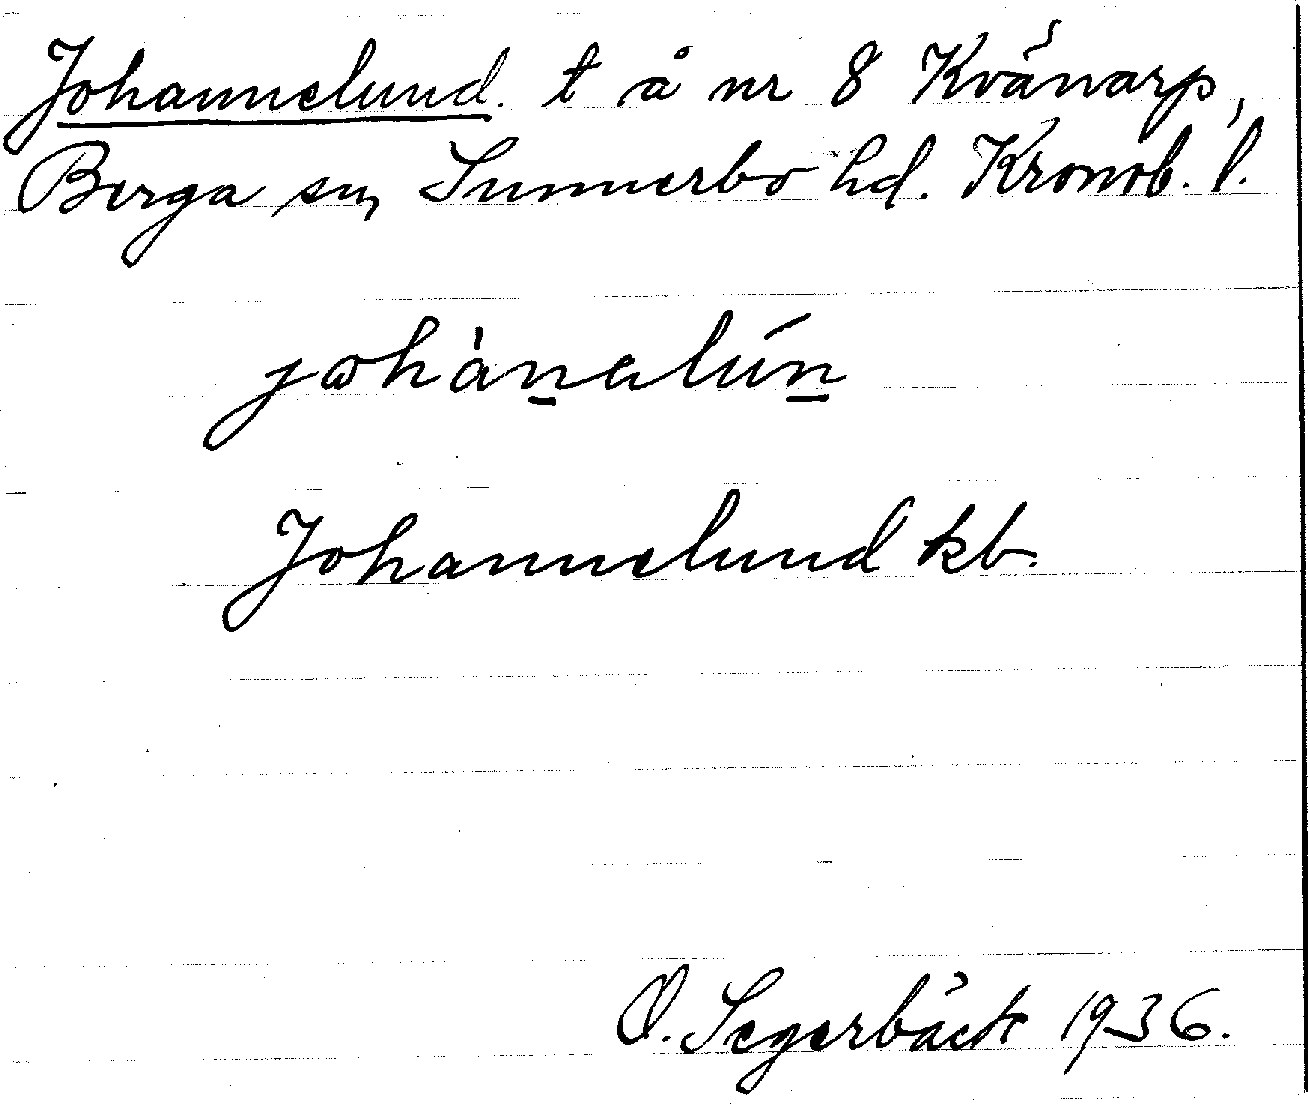 Johannelund. t å nr 8 Kvänarp,
Berga sn, Sunnerbo hd. Kronob. l.
johànalún
Johannelund kb.
O. Segerbäck 1936.